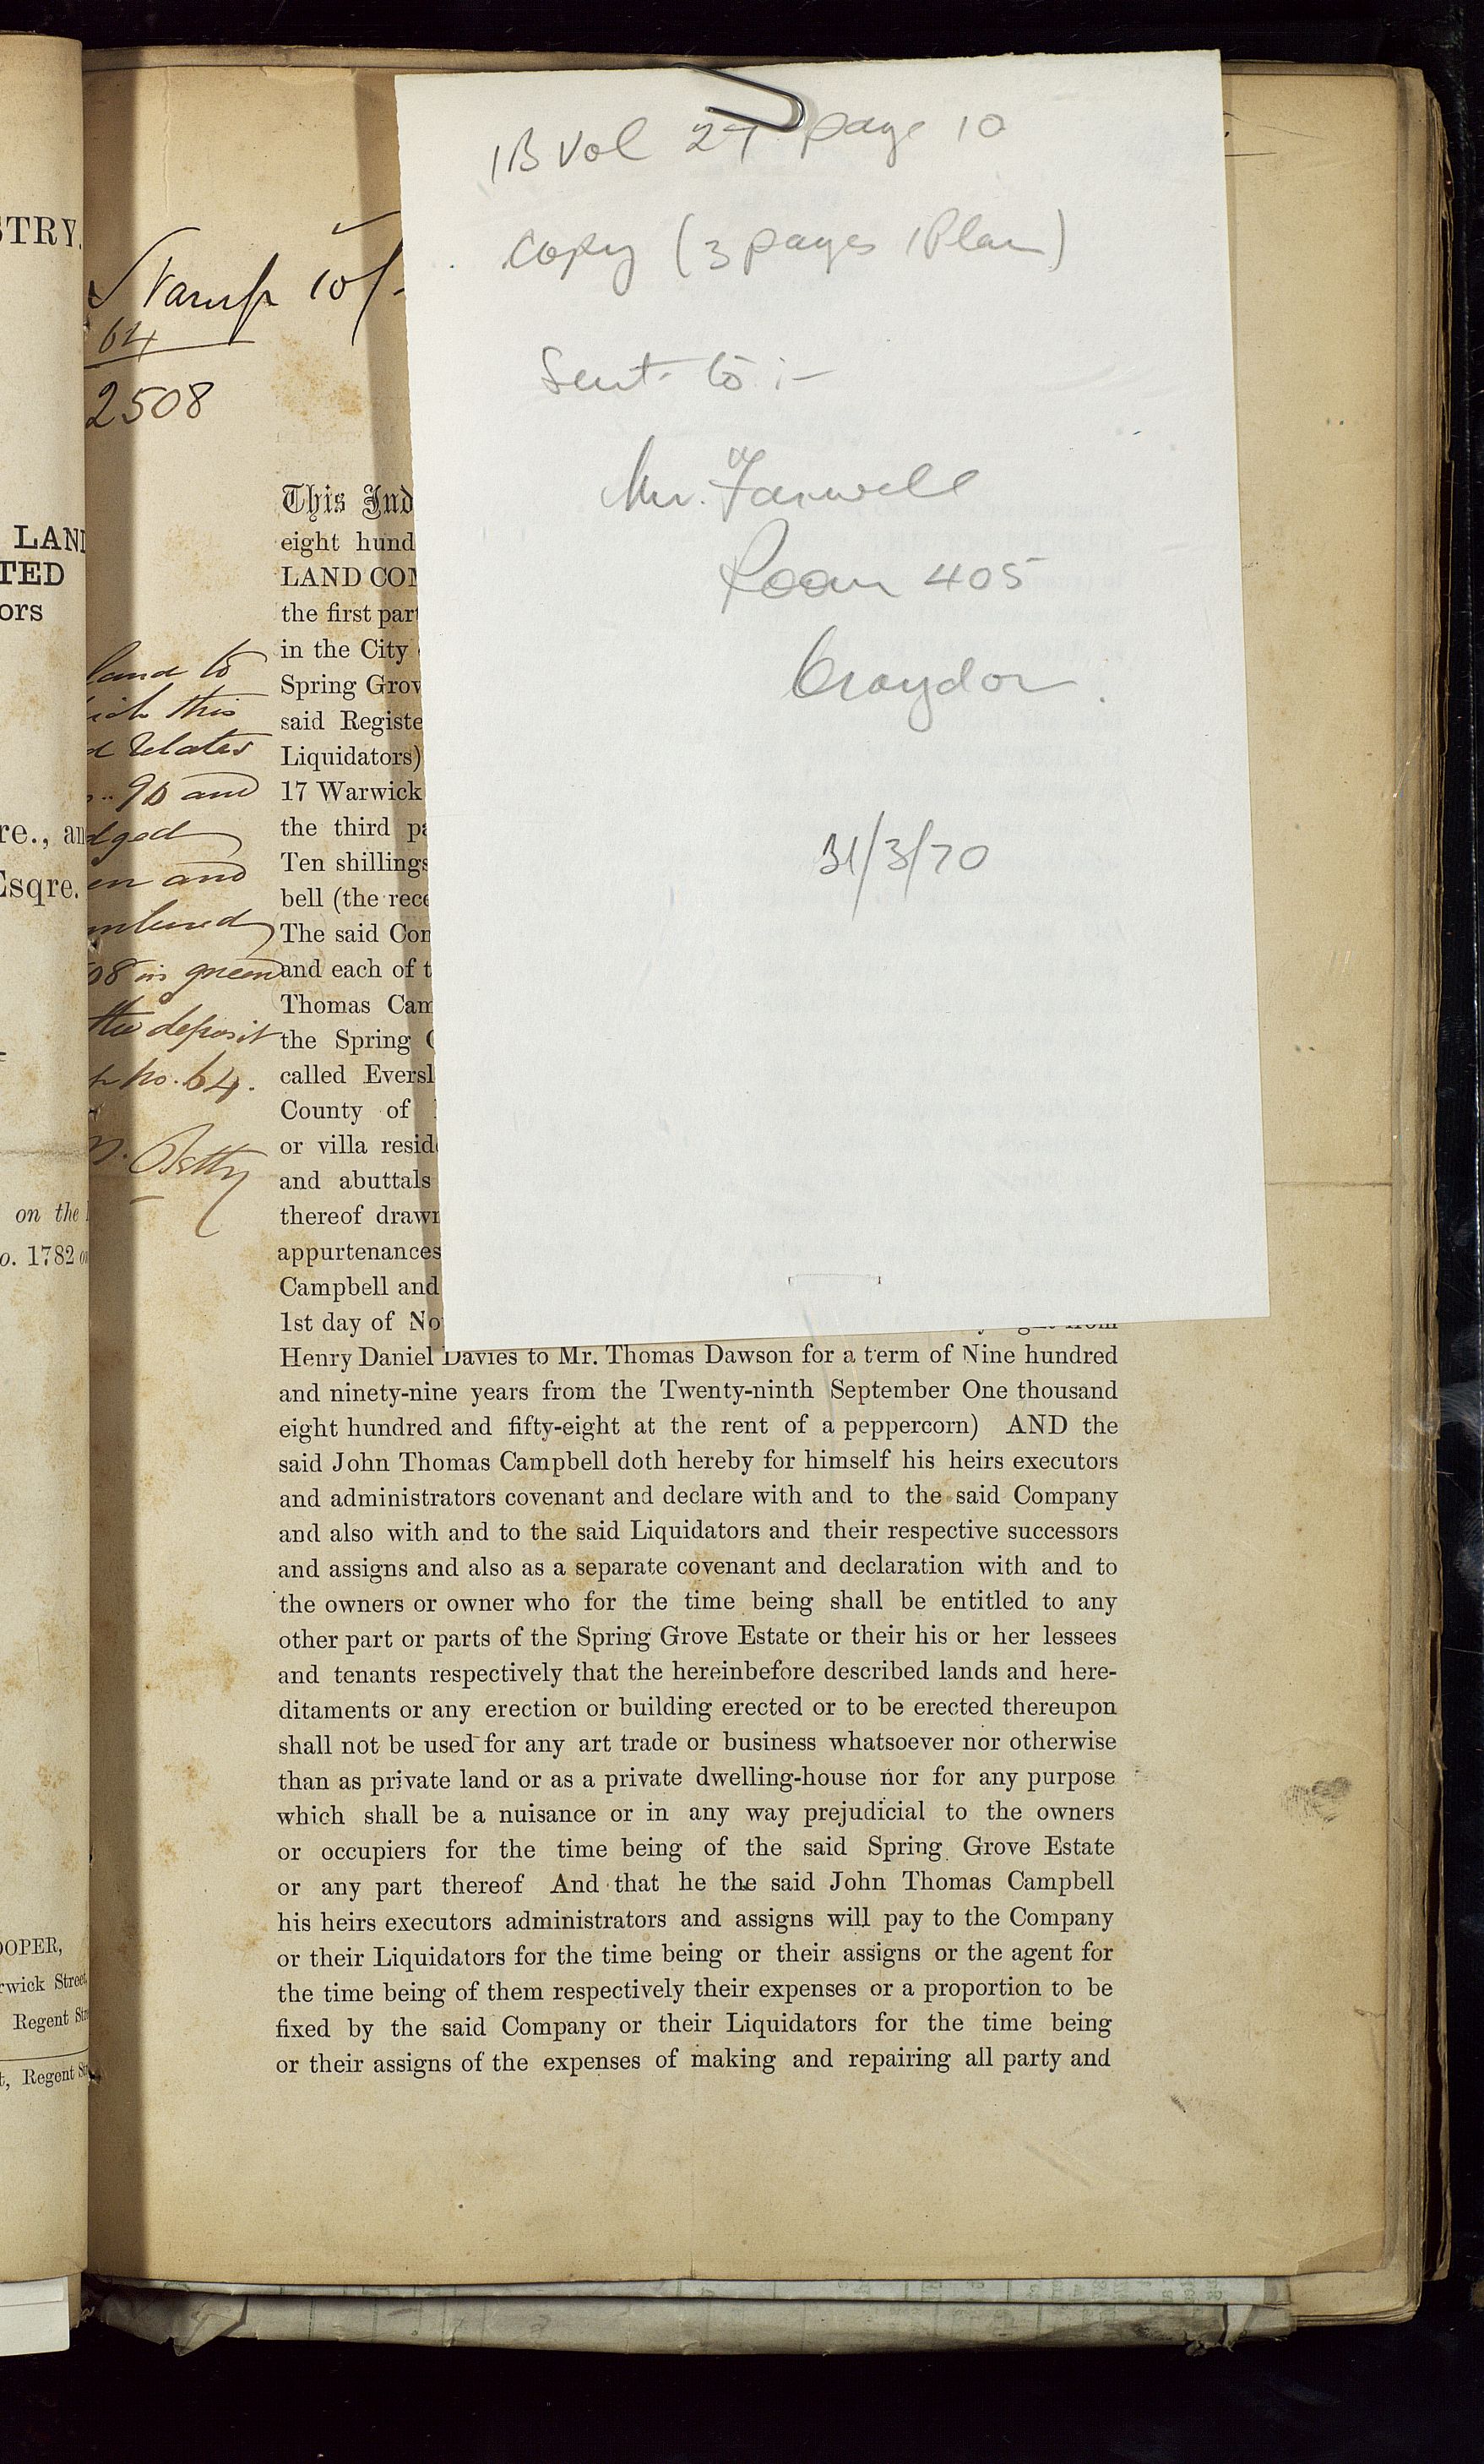 STRY.
LAND
TED
ors
re., an
Esqre.
on the
o. 1782 on
OOPER,
rwick Street,
Regent
t, Regent
Stamp 10/-
64
2508
land to
this
relates
96 and
and
in green
the deposit
no. 64.
1B Vol 27 page 10
Copy (3 pages 1 Plan)
Sent to :-
Mr. Farwell
Room 405
Croydon.
31/3/70
This Ind
eight hund
LAND COM
the first part
in the City
Spring Grov
said Registe
Liquidators)
17 Warwick
the third pa
Ten shillings
bell (the rece
The said Com
and each of t
Thomas Cam
the Spring G
called Eversl
County of
or villa reside
and abuttals
thereof drawn
appurtenances
Campbell and
1st day of No from
Henry Daniel Davies to Mr. Thomas Dawson for a term of Nine hundred
and ninety-nine years from the Twenty-ninth September One thousand
eight hundred and fifty-eight at the rent of a peppercorn) AND the
said John Thomas Campbell doth hereby for himself his heirs executors
and administrators covenant and declare with and to the said Company
and also with and to the said Liquidators and their respective successors
and assigns and also as a separate covenant and declaration with and to
the owners or owner who for the time being shall be entitled to any
other part or parts of the Spring Grove Estate or their his or her lessees
and tenants respectively that the hereinbefore described lands and here-
ditaments or any erection or building erected or to be erected thereupon
shall not be used for any art trade or business whatsoever nor otherwise
than as private land or as a private dwelling-house nor for any purpose
which shall be a nuisance or in any way prejudicial to the owners
or occupiers for the time being of the said Spring Grove Estate
or any part thereof And that he the said John Thomas Campbell
his heirs executors administrators and assigns will pay to the Company
or their Liquidators for the time being or their assigns or the agent for
the time being of them respectively their expenses or a proportion to be
fixed by the said Company or their Liquidators for the time being
or their assigns of the expenses of making and repairing all party and